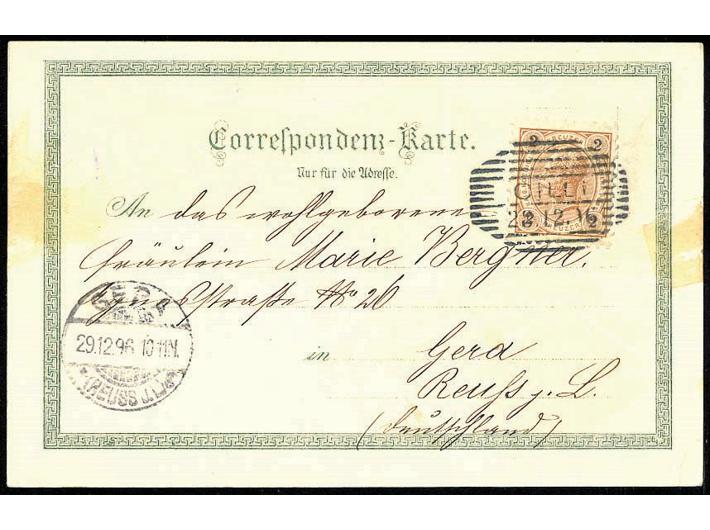 Correspondenz-Karte.
Nur für die Adresse.
2 KREUZER 2
CILLI
An das wohlgeborene
Fräulein Marie Bergner.
Agnesstraße No 20
GERA
29.12.96 10-11N.
(REUSS J.L.)
in Gera
Reuß j. L.
(Deutschland)